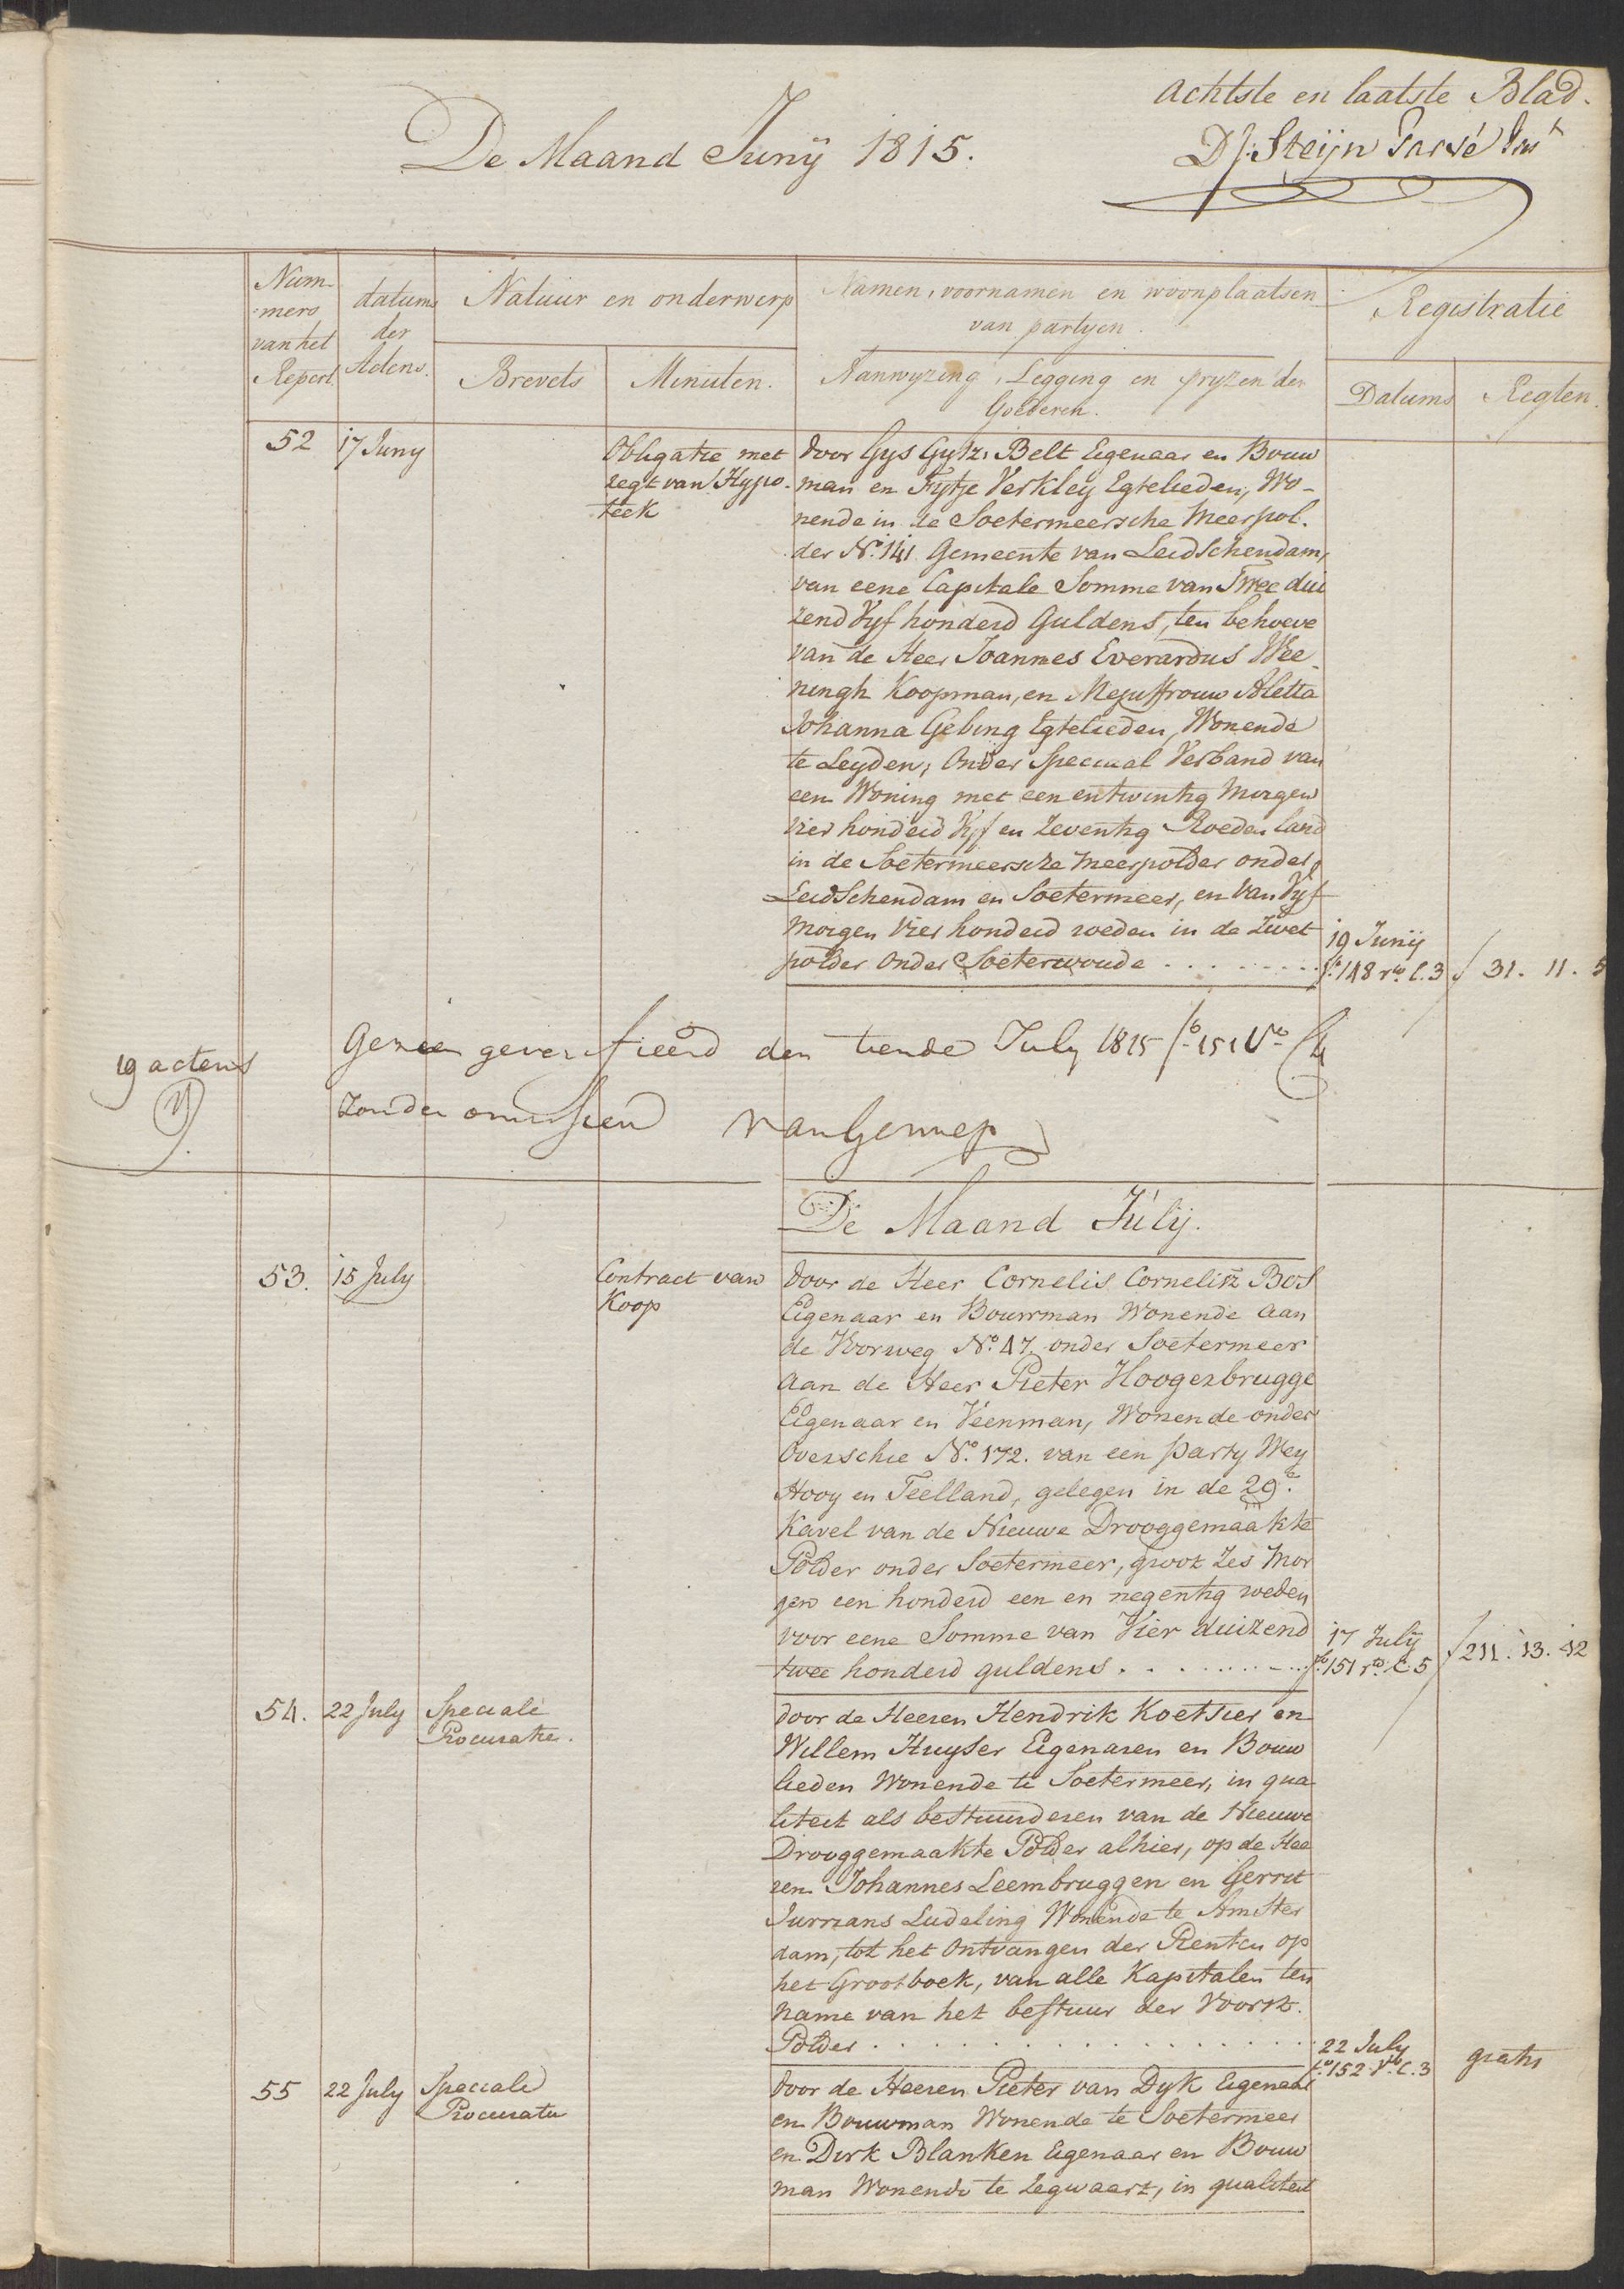 Achtste en laatste Blad.
De Maand Junij 1815.
D J: Steijn Parvé
Num-
mero
van het
Repert.
datums
der
Actens.
Natuur en onderwerp
Brevets
Minuten.
Namen, voornamen en woonplaatsen
van partyen.
Aanwyzing, Legging en pryzen der
Goederen.
Registratie
Datums
Regten.
52
17 Juny
Obligatie met
regt van Hypo-
teek
door Gys Gysz: Belt Eigenaar en Bouw
man en Fijtje Verkley Egtelieden, Wo-
nende in de Soetermeersche Meerpol-
der No. 141 Gemeente van Leidschendam,
van eene Capitale Somme van Twee dui
zend Vyf honderd Guldens, ten behoeve
van de Heer Joannes Everardus Wee-
ningh Koopman, en Mejuffrouw Aletta
Johanna Gebing Egtelieden, Wonende
te Leyden, Onder Speciaal Verband van
een Woning met een en twintig Morgen
Vier honderd Vyf en Zeventig Roeden land
in de Soetermeersche Meerpolder onder
Leidschendam en Soetermeer, en van Vyf
Morgen Vier honderd roeden in de Zwet
polder onder Soeterwoude . . . . . . . .
19 Junij
fo. 148 ro. C. 3
f 31. 11. 5
19 actens
Gezien geverifieerd den tiende July 1815 fo. 151 Vo C 4
zonder omissien
van Gennep
De Maand Julij.
53.
15 July
Contract van
Koop
door de Heer Cornelis Cornelisz Bos
Eigenaar en Bouwman Wonende aan
de Voorweg No. 47 onder Soetermeer
aan de Heer Pieter Hoogenbrugge
Eigenaar en Veenman, Wonende onder
Overschie No. 172. van een party Wey
Hooy en Teelland, gelegen in de 29e.
Kavel van de Nieuwe Drooggemaakte
Polder onder Soetermeer, groot Zes Mor
gen een honderd een en negentig roeden
voor eene Somme van Vier duizend
twee honderd guldens . . . . . . . . .
17 Julij
fo. 151 ro. C. 5
f 211. 13. 12
54.
22 July
Speciale
Procuratie.
door de Heeren Hendrik Koetsier en
Willem Huyser Eigenaren en Bouw
lieden Wonende te Soetermeer, in qua
liteit als bestuurderen van de Nieuwe
Drooggemaakte Polder alhier, op de Hee
ren Johannes Leembruggen en Gerrit
Jurrians Ludeling Wonende te Amster
dam, tot het Ontvangen der Renten op
het Grootboek, van alle Kapitalen ten
name van het bestuur der Voorsz.
Polder . . . . . . . . . . . . . .
22 July
fo. 152 Vo. C. 3
gratis
55
22 July
Speciale
Procuratie
door de Heeren Pieter van Dyk Eigenaar
en Bouwman Wonende te Soetermeer
en Dirk Blanken Eigenaar en Bouw
man Wonende te Zegwaart, in qualiteit